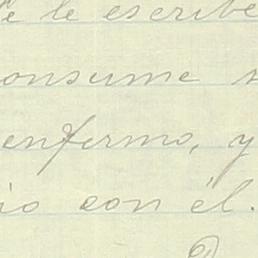 le escribe
onsume
enfermo, y
io con él.